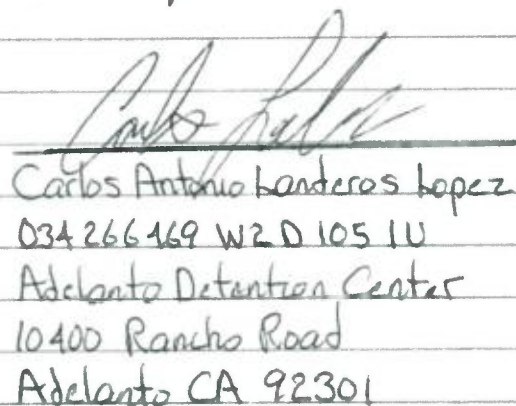 Carlos Antonio Landeros Lopez
034266469 W2D 105 1U
Adelanto Detention Center
10400 Rancho Road
Adelanto CA 92301